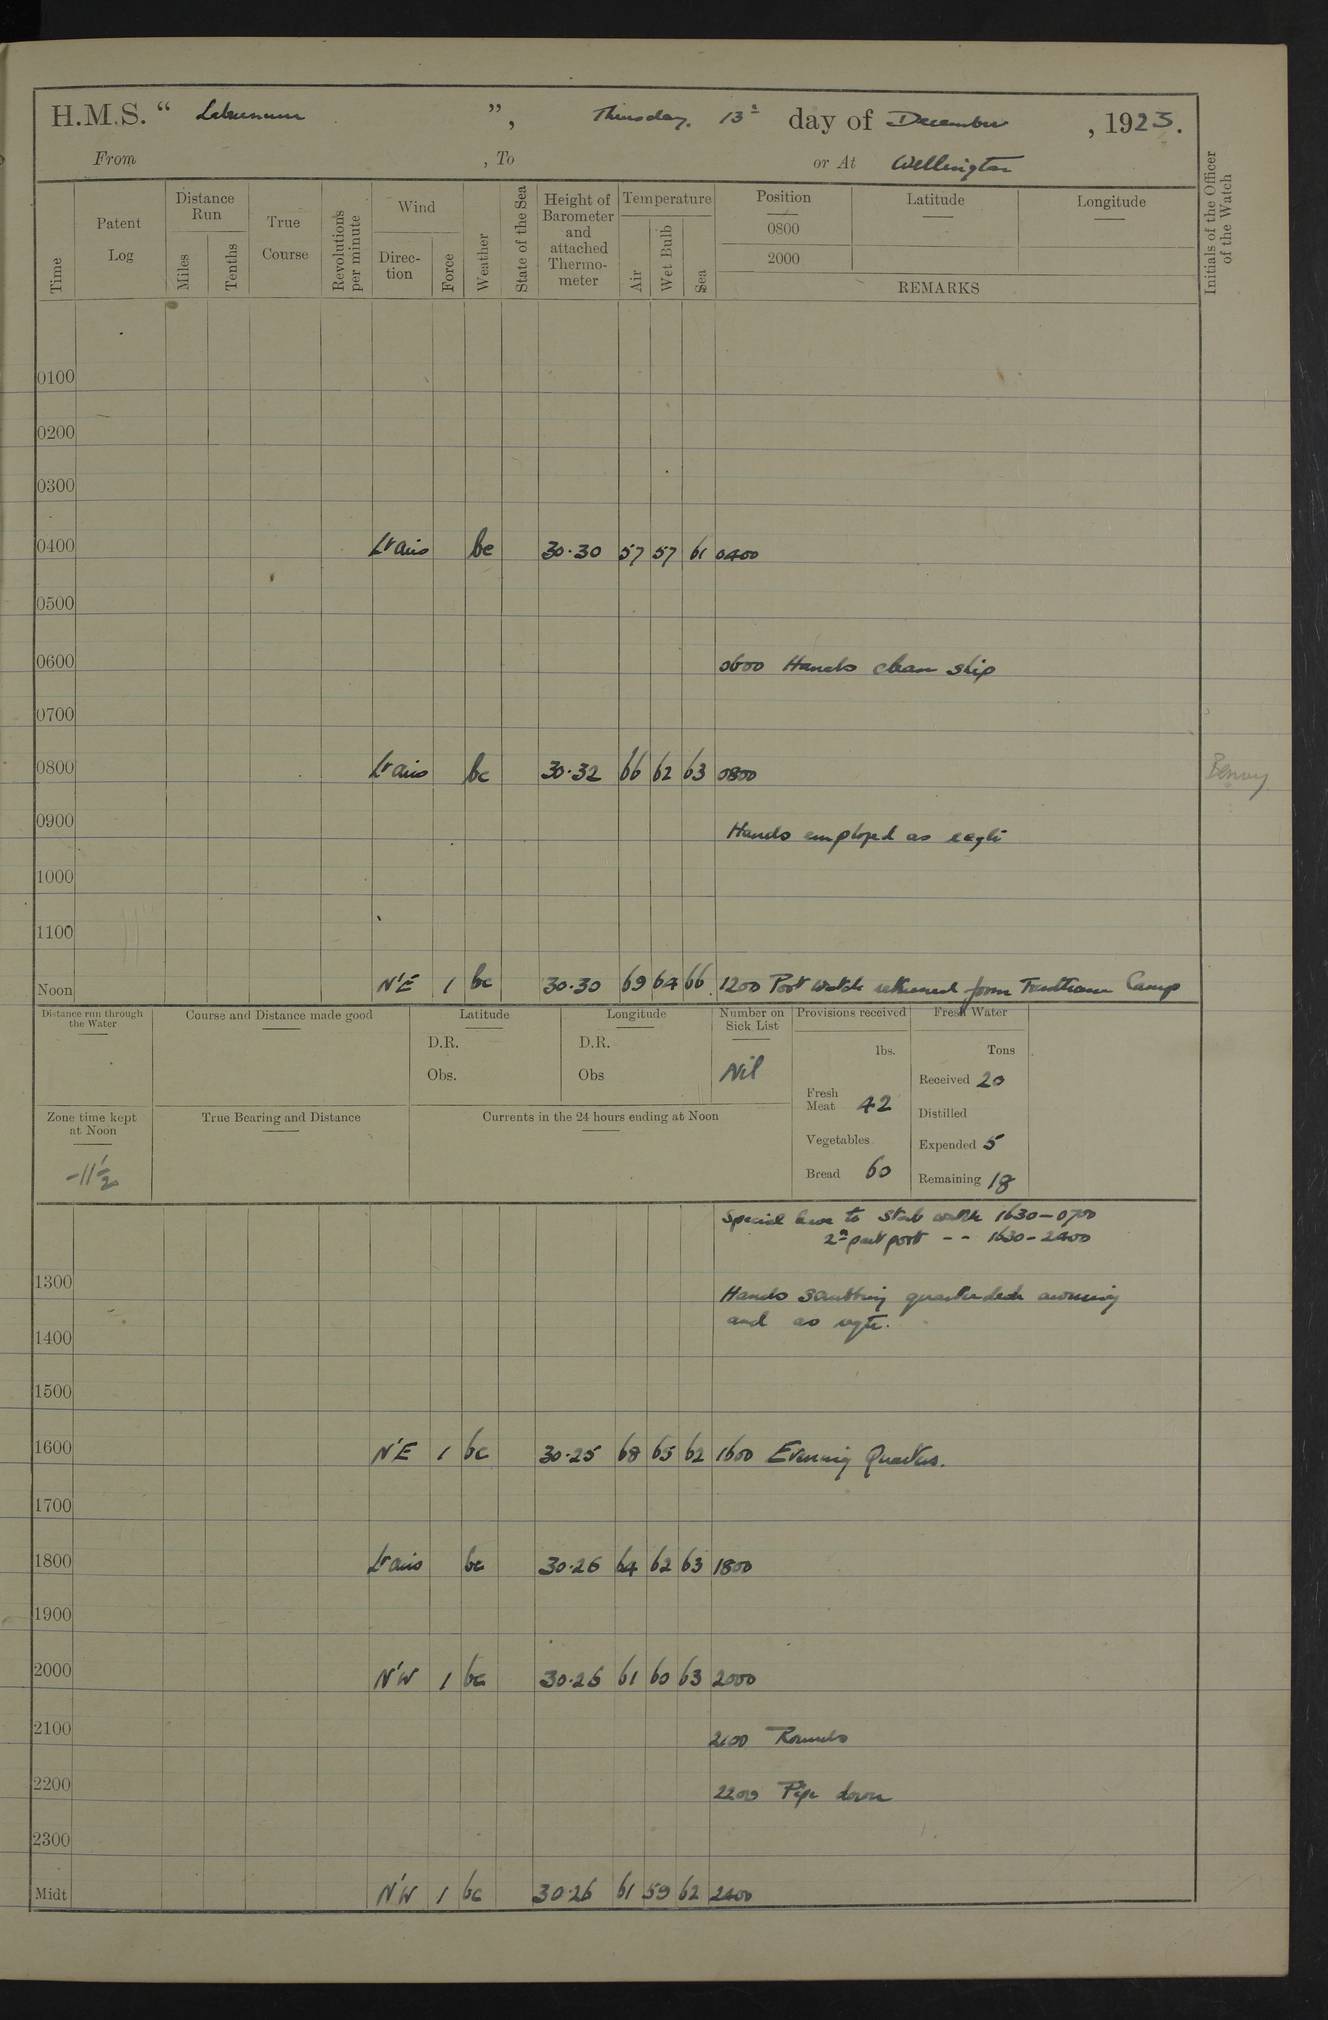 H.M.S. “ Laburnum ”, Thursday. 13th day of December , 1923.
From , To or At Wellington
Time
Patent Log
Distance Run
Miles
Tenths
True Course
Revolutions per minute
Wind
Direc- tion
Force
Weather
State of the Sea
Height of Barometer and attached Thermo- meter
Temperature
Air
Wet Bulb
Sea
Position
0800
2000
Latitude
Longitude
REMARKS
Initials of the Officer of the Watch
0100
0200
0300
0400 Lt airs bc 30·30 57 57 61 0400
0500
0600 0600 Hands clean ship
0700
0800 Lt airs bc 30·32 66 62 63 0800
0900 Hands employed as reqte
1000
1100
Noon N'E 1 bc 30·30 69 64 66 1200 Port watch returned from Trentham Camp
Distance run through the Water
Course and Distance made good
Latitude
D.R.
Obs.
Longitude
D.R.
Obs
Number on Sick List
Nil
Provisions received
lbs.
Fresh Meat 42
Vegetables
Bread 60
Fresh Water
Tons
Received 20
Distilled
Expended 5
Remaining 18
Zone time kept at Noon
-11½
True Bearing and Distance
Currents in the 24 hours ending at Noon
Special leave to Stab watch 1630-0700
2nd part port - - 1630-2400
1300 Hands scrubbing quarterdeck awning
and as reqte.
1400
1500
1600 N'E 1 bc 30·25 68 65 62 1600 Evening Quarters.
1700
1800 Lt airs bc 30·26 64 62 63 1800
1900
2000 N'W 1 bc 30·26 61 60 63 2000
2100 2100 Rounds
2200 2200 Pipe down
2300
Midt N'W 1 bc 30·26 61 59 62 2400